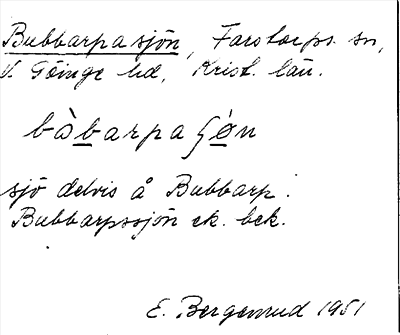 Bubbarpasjön, Farstorps sn,
V. Göinge hd, Krist. län.
bàbarpaʃøn
sjö delvis å Bubbarp.
Bubbarpssjön ek. bek.
E. Bergenrud 1951